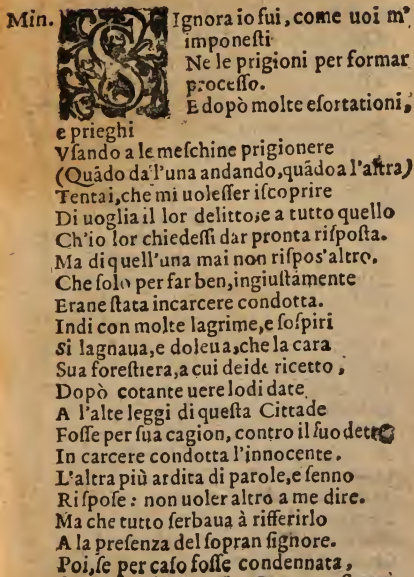 Min. SIgnora io fui, come uoi m'
imponesti
Ne le prigioni per formar
processo.
E dopò molte esortationi,
e prieghi
Vsando a le meschine prigionere
(Quãdo da l'una andando, quãdo a l'altra)
Tentai, che mi uolesser iscoprire
Di uoglia il lor delitto: e a tutto quello
Ch'io lor chiedessi dar pronta risposta.
Ma di quell'una mai non rispos'altro.
Che solo per far ben, ingiustamente
Erane stata incarcere condotta.
Indi con molte lagrime, e sospiri
Si lagnaua, e doleua, che la cara
Sua forestiera, a cui deide ricetto,
Dopò cotante uere lodi date
A l'alte leggi di questa Cittade
Fosse per sua cagion, contro il suo detto
In carcere condotta l'innocente.
L'altra più ardita di parole, e senno
Rispose: non uoler altro a me dire.
Ma che tutto serbaua à rifferirlo
A la presenza del sopran signore.
Poi, se per caso fosse condennata,